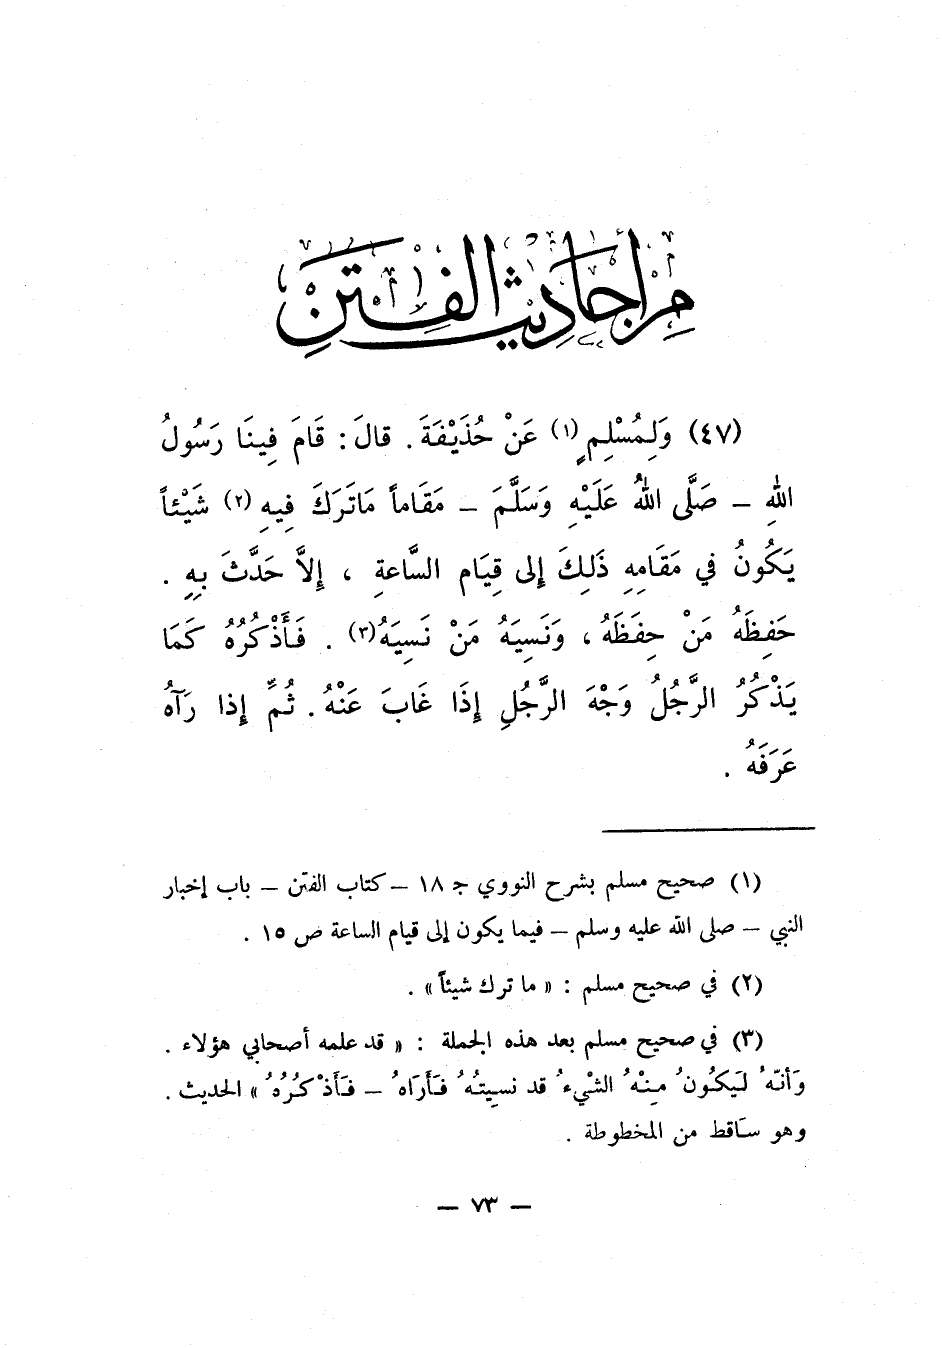 من أحاديث الفتن
(٤٧) وَلِمُسْلِمٍ (١) عَنْ حُذَيْفَةَ . قالَ : قَامَ فِينَا رَسُولُ
اللهِ – صَلَّى اللهُ عَلَيْهِ وَسَلَّمَ – مَقَاماً مَاتَرَكَ فِيهِ (٢) شَيْئاً
يَكُونُ في مَقَامِهِ ذَلِكَ إلى قِيَام السَّاعةِ ، إلاَّ حَدَّثَ بِهِ .
حَفِظَهُ مَنْ حِفَظَهُ ، وَنَسِيَهُ مَنْ نَسِيَهُ (٣) . فَأَذْكُرُهُ كَمَا
يَذْكُرُ الرَّجُلُ وَجْهَ الرَّجُلِ إذَا غَابَ عَنْهُ . ثُمَّ إذا رَآهُ
عَرَفَهُ .
(١) صحيح مسلم بشرح النووي جـ ١٨ – كتاب الفتن – باب إخبار
النبي – صلى الله عليه وسلم – فيما يكون إلى قيام الساعة ص ١٥ .
(٢) في صحيح مسلم : « ما ترك شيئاً » .
(٣) في صحيح مسلم بعد هذه الجملة : « قد علمه أصحابي هؤلاء .
وَأنّهُ لَيَكُونُ مِنْهُ الشّيْءُ قد نسيتُهُ فَأَرَاهُ – فَأَذْكُرُهُ » الحديث .
وهو سَاقط من المخطوطة .
– ٧٣ –